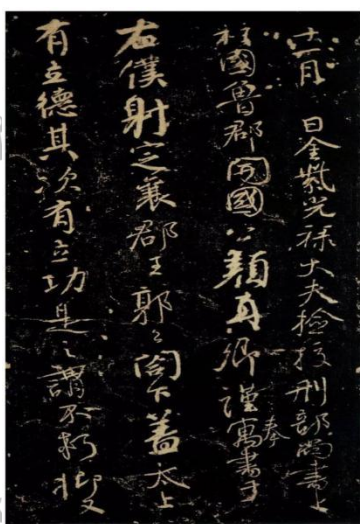 十一月 日金紫光祿大夫檢校刑部尚書上
柱國魯郡開國公顏真卿謹奉寓書于
右僕射定襄郡王郭公閤下蓋太上
有立德其次有立功是之謂不朽抑又